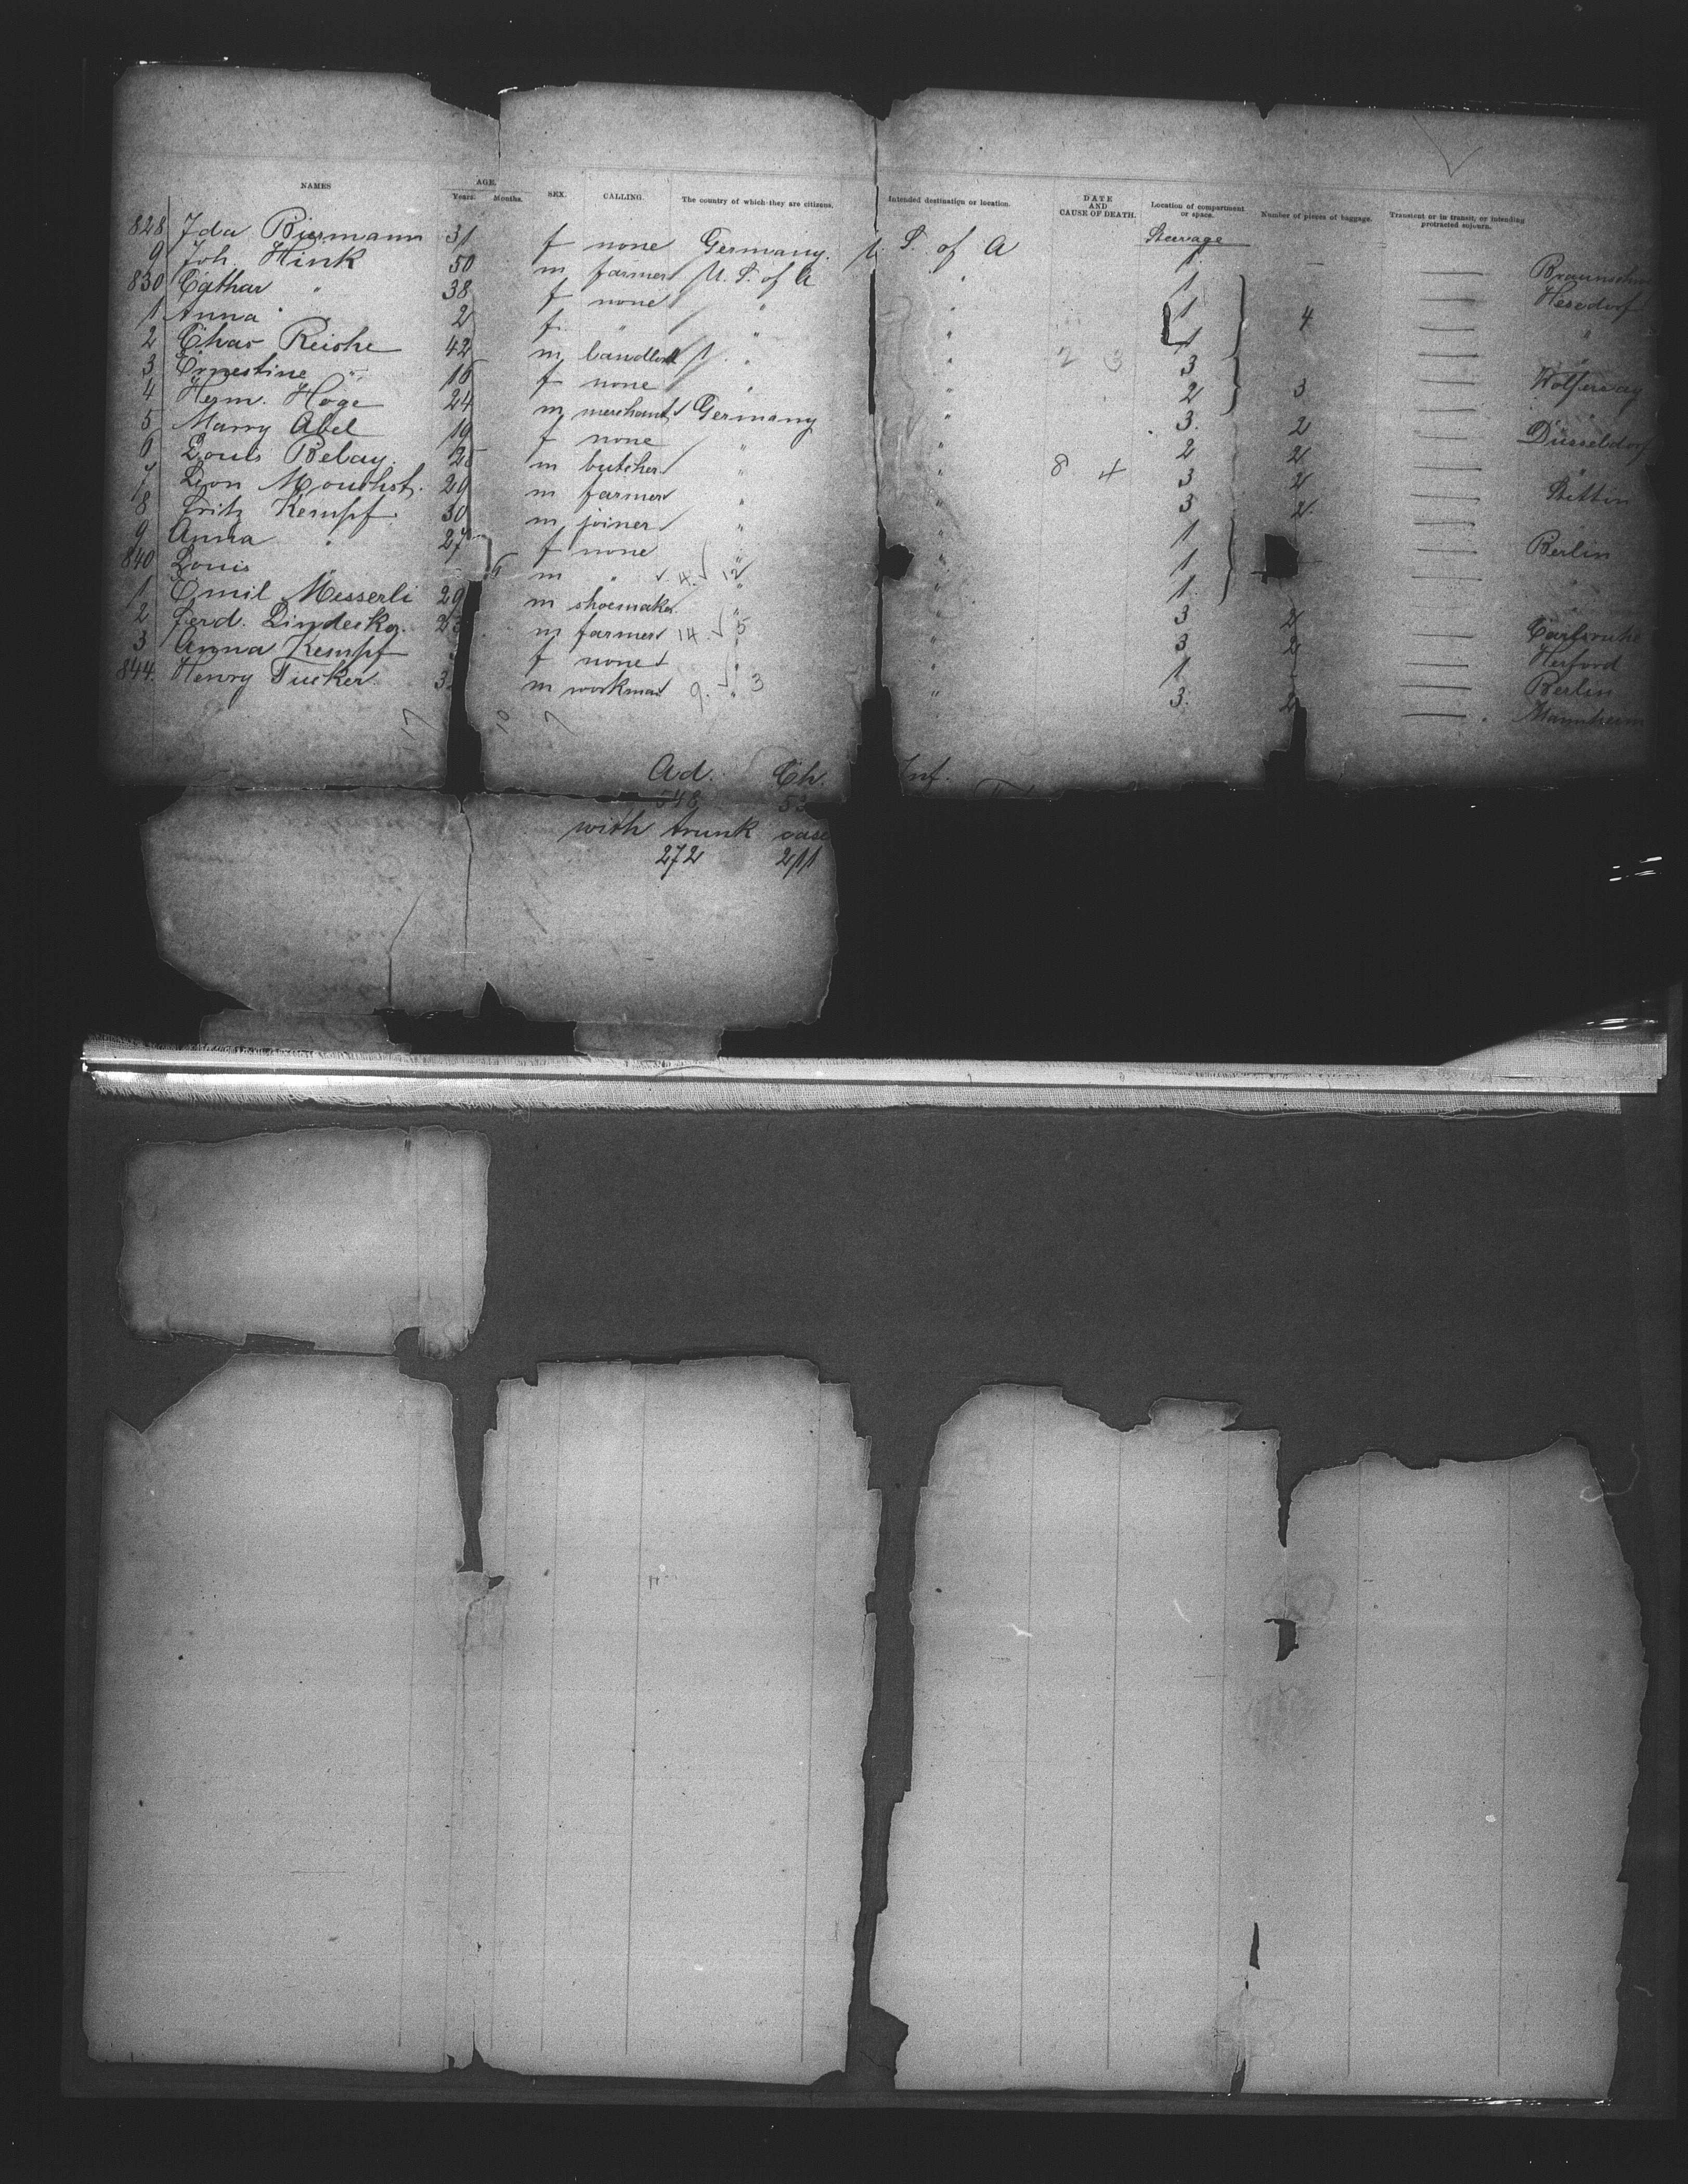 NAMES AGE. Years. Months. SEX. CALLING. The country of which they are citizens. Intended destination or location. DATE AND CAUSE OF DEATH. Location of compartment or space. Number of pieces of baggage. Transient or in transit, or intending protracted sojourn.
Steerage
828 Ida Biermann 31 f none Germany. U. S. of A 1
9 Joh. Hink 50 m farmer U. S. of A " 1
830 Cathar " 38 f none " " 1 4
1 Anna " 2 f " " " 1
2 Chas Reiche 42 m landlord " " 3
3 Ernestine " 16 f none " " 2 3
4 Herm. Hoge 24 m merchant Germany " 3. 2 Düsseldorf
5 Marry Abel 19 f none " " 2 2
6 Louis Belay. 25 m butcher " " 3 2 Stettin
7 Leon 29 m farmer " " 3 2
8 Fritz Kempf 30 m joiner " " 1 Berlin
9 Anna " 27 f none " " 1
840 Louis 6 m " " " 1
1 Emil Messerli 29 m shoemaker " " 3 2 Carlsruhe
2 Ferd. m farmer " " 3 2 Herford
3 Anna Kempf f none " " 1 Berlin
844. Henry Tucker. 3 m workman " " 3. 2 Mannheim
17 10 7
Ad. Ch. Inf.
548 53
with trunk case
272 211